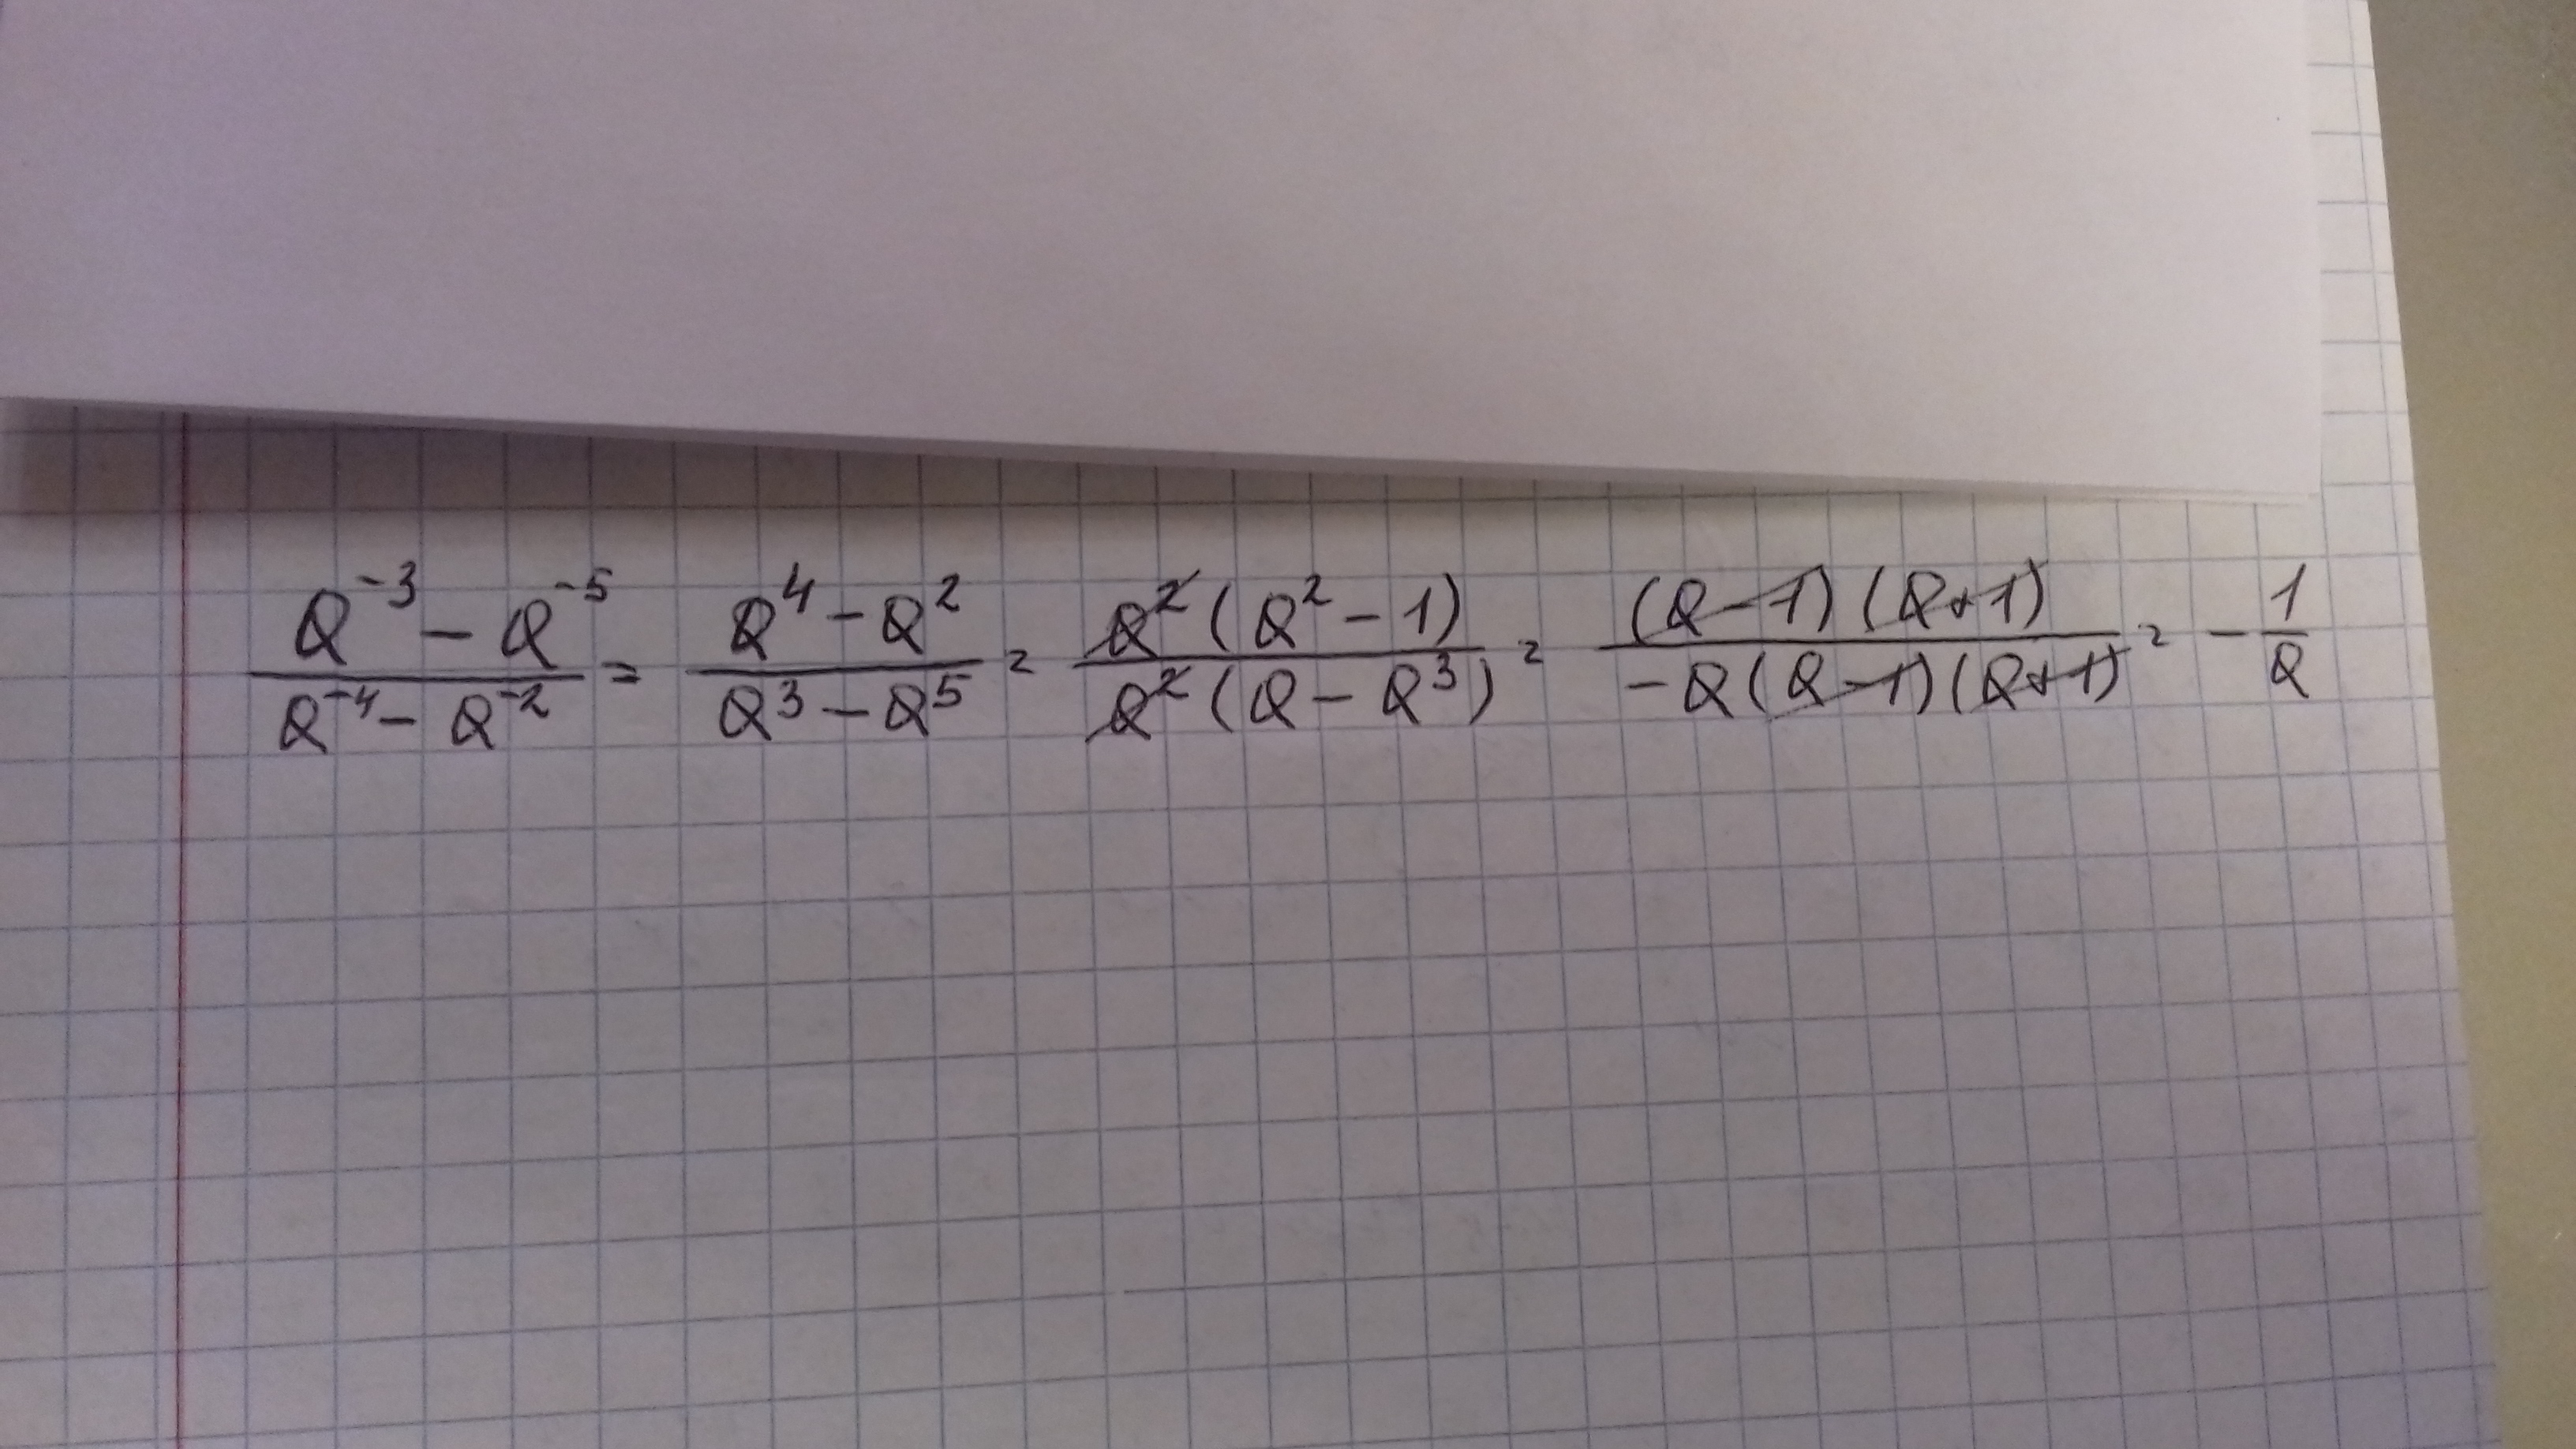 (Q⁻³ - Q⁻⁵)/(Q⁻⁴ - Q⁻²) = (Q⁴ - Q²)/(Q³ - Q⁵) = (Q²(Q² - 1))/(Q²(Q - Q³)) = ((Q - 1)(Q + 1))/(-Q(Q - 1)(Q + 1)) = -1/Q